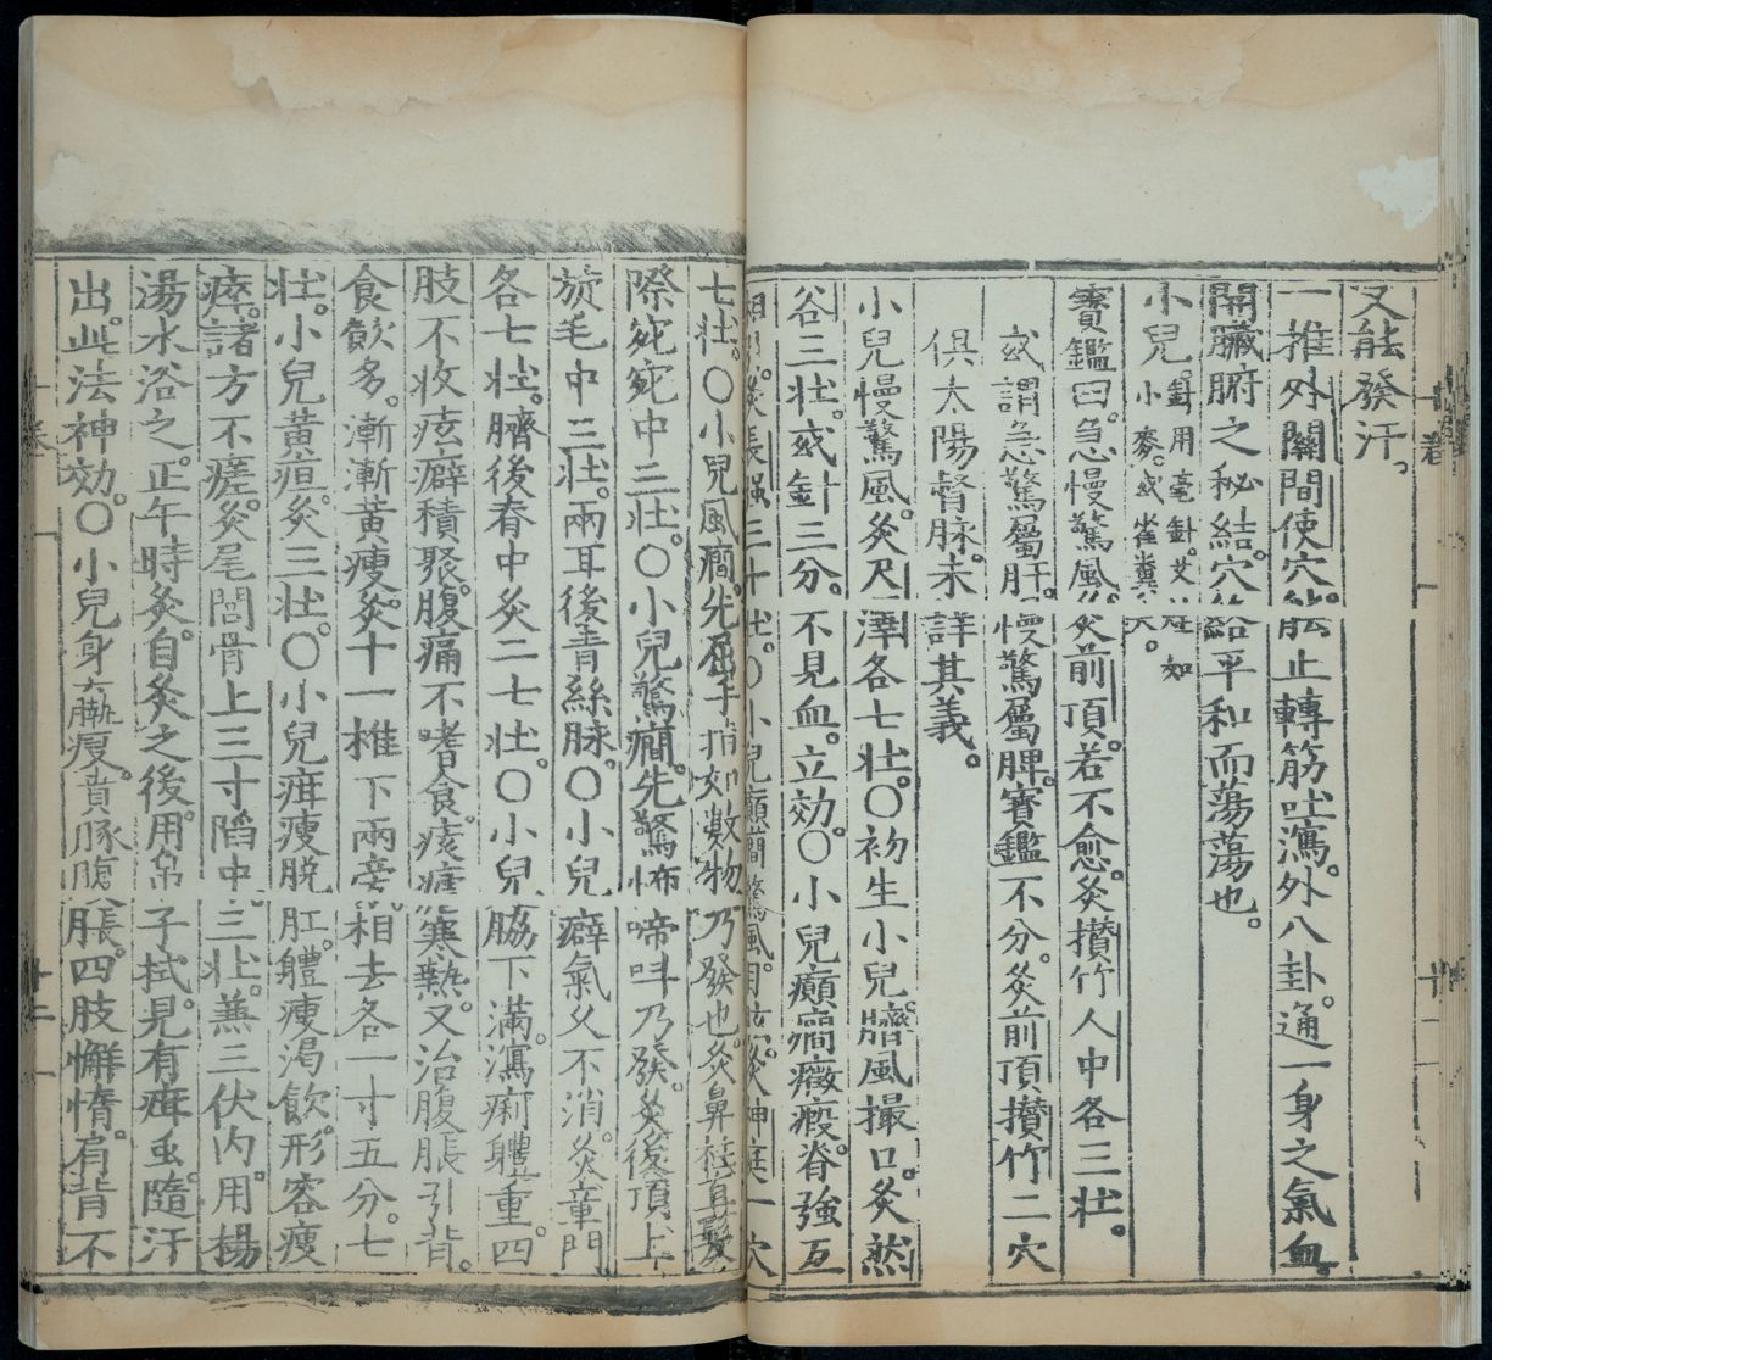 又能發汗。
一推外關間使穴。能止轉筋吐瀉。外八卦。通一身之氣血。
開臟腑之秘結。穴絡平和而蕩蕩也。
小兒。針用毫針。艾炷如
小麥。或雀糞大。
寶鑑曰。急慢驚風。灸前頂。若不愈。灸攅竹人中各三壯。
或謂急驚屬肝。慢驚屬脾。寶鑑不分。灸前頂攅竹二穴
俱太陽督脉。未詳其義。
小兒慢驚風。灸尺澤各七壯。〇初生小兒臍風撮口。灸然
谷三壯。或針三分。不見血。立効。〇小兒癲癇癥瘕。脊強互
相引。灸長強三十壯。〇小兒癲癇驚風。目眩。灸神庭一穴
七壯。〇小兒風癇。先屈手指如數物乃發也。灸鼻柱直髮
際宛宛中三壯。〇小兒驚癇。先驚怖啼呌乃發。灸後頂上
旋毛中三壯。兩耳後青絲脉。〇小兒癖氣久不消。灸章門
各七壯。臍後脊中灸二七壯。〇小兒脇下滿。瀉痢體重。四
肢不收痃癖積聚。腹痛不嗜食。痎瘧寒熱。又治腹脹引背。
食飮多。漸漸黃瘦。灸十一椎下兩旁相去各一寸五分。七
壯。小兒黃疸。灸三壯。〇小兒疳瘦脱肛。體瘦渴飮。形容瘦
瘁。諸方不瘥。灸尾閭骨上三寸陷中三壯。兼三伏內。用楊
湯水浴之。正午時灸。自灸之後。用帛子拭。見有疳虫。隨汗
出。此法神効。〇小兒身羸瘦。賁豚腹脹。四肢懈惰。肩背不